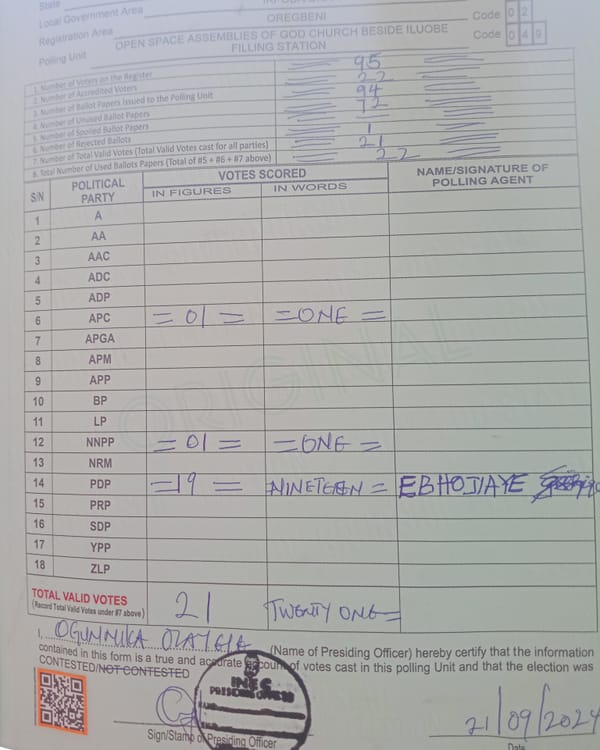 State
Local Government Area
OREGBENI Code 0 2
Registration Area
OPEN SPACE ASSEMBLIES OF GOD CHURCH BESIDE ILUOBE Code 0 4 9
Polling Unit FILLING STATION
1. Number of Voters on the Register 95
2. Number of Accredited Voters 22
3. Number of Ballot Papers Issued to the Polling Unit 94
4. Number of Unused Ballot Papers 72
5. Number of Spoiled Ballot Papers
6. Number of Rejected Ballots 1
7. Number of Total Valid Votes (Total Valid Votes cast for all parties) 21
8. Total Number of Used Ballots Papers (Total of #5 + #6 + #7 above) 22
S/N POLITICAL PARTY VOTES SCORED NAME/SIGNATURE OF POLLING AGENT
IN FIGURES IN WORDS
1 A
2 AA
3 AAC
4 ADC
5 ADP
6 APC = 01 = =ONE =
7 APGA
8 APM
9 APP
10 BP
11 LP
12 NNPP = 01 = =ONE =
13 NRM
14 PDP =19 = NINETEEN = EBHODIAYE
15 PRP
16 SDP
17 YPP
18 ZLP
ORIGINAL
TOTAL VALID VOTES 21 TWENTY ONE=
(Record Total Valid Votes under #7 above)
I, OGUNNIKA (Name of Presiding Officer) hereby certify that the information
contained in this form is a true and accurate account of votes cast in this polling Unit and that the election was
CONTESTED/NOT CONTESTED
INEC
PRESIDING OFFICER
21/09/2024
Sign/Stamp of Presiding Officer Date